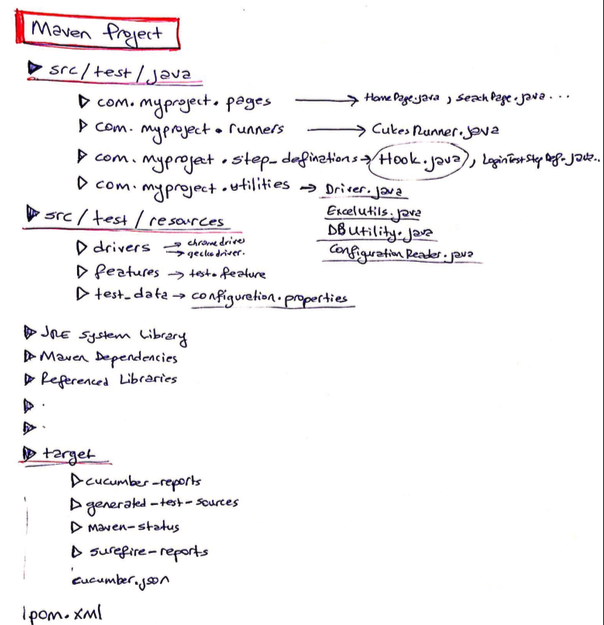 Maven Project
src/test/java
com.myproject.pages → HomePage.java, SeachPage.java...
com.myproject.runners → CukesRunner.java
com.myproject.step_definations → Hook.java, LoginTestStepDef.java..
com.myproject.utilities → Driver.java
Excelutils.java
DButility.java
Configuration Reader.java
src/test/resources
drivers → chromedriver
→ geckodriver.
features → test.feature
test_data → configuration.properties
JRE System Library
Maven Dependencies
Referenced Libraries
.
.
target
cucumber-reports
generated-test-sources
maven-status
surefire-reports
cucumber.json
pom.xml